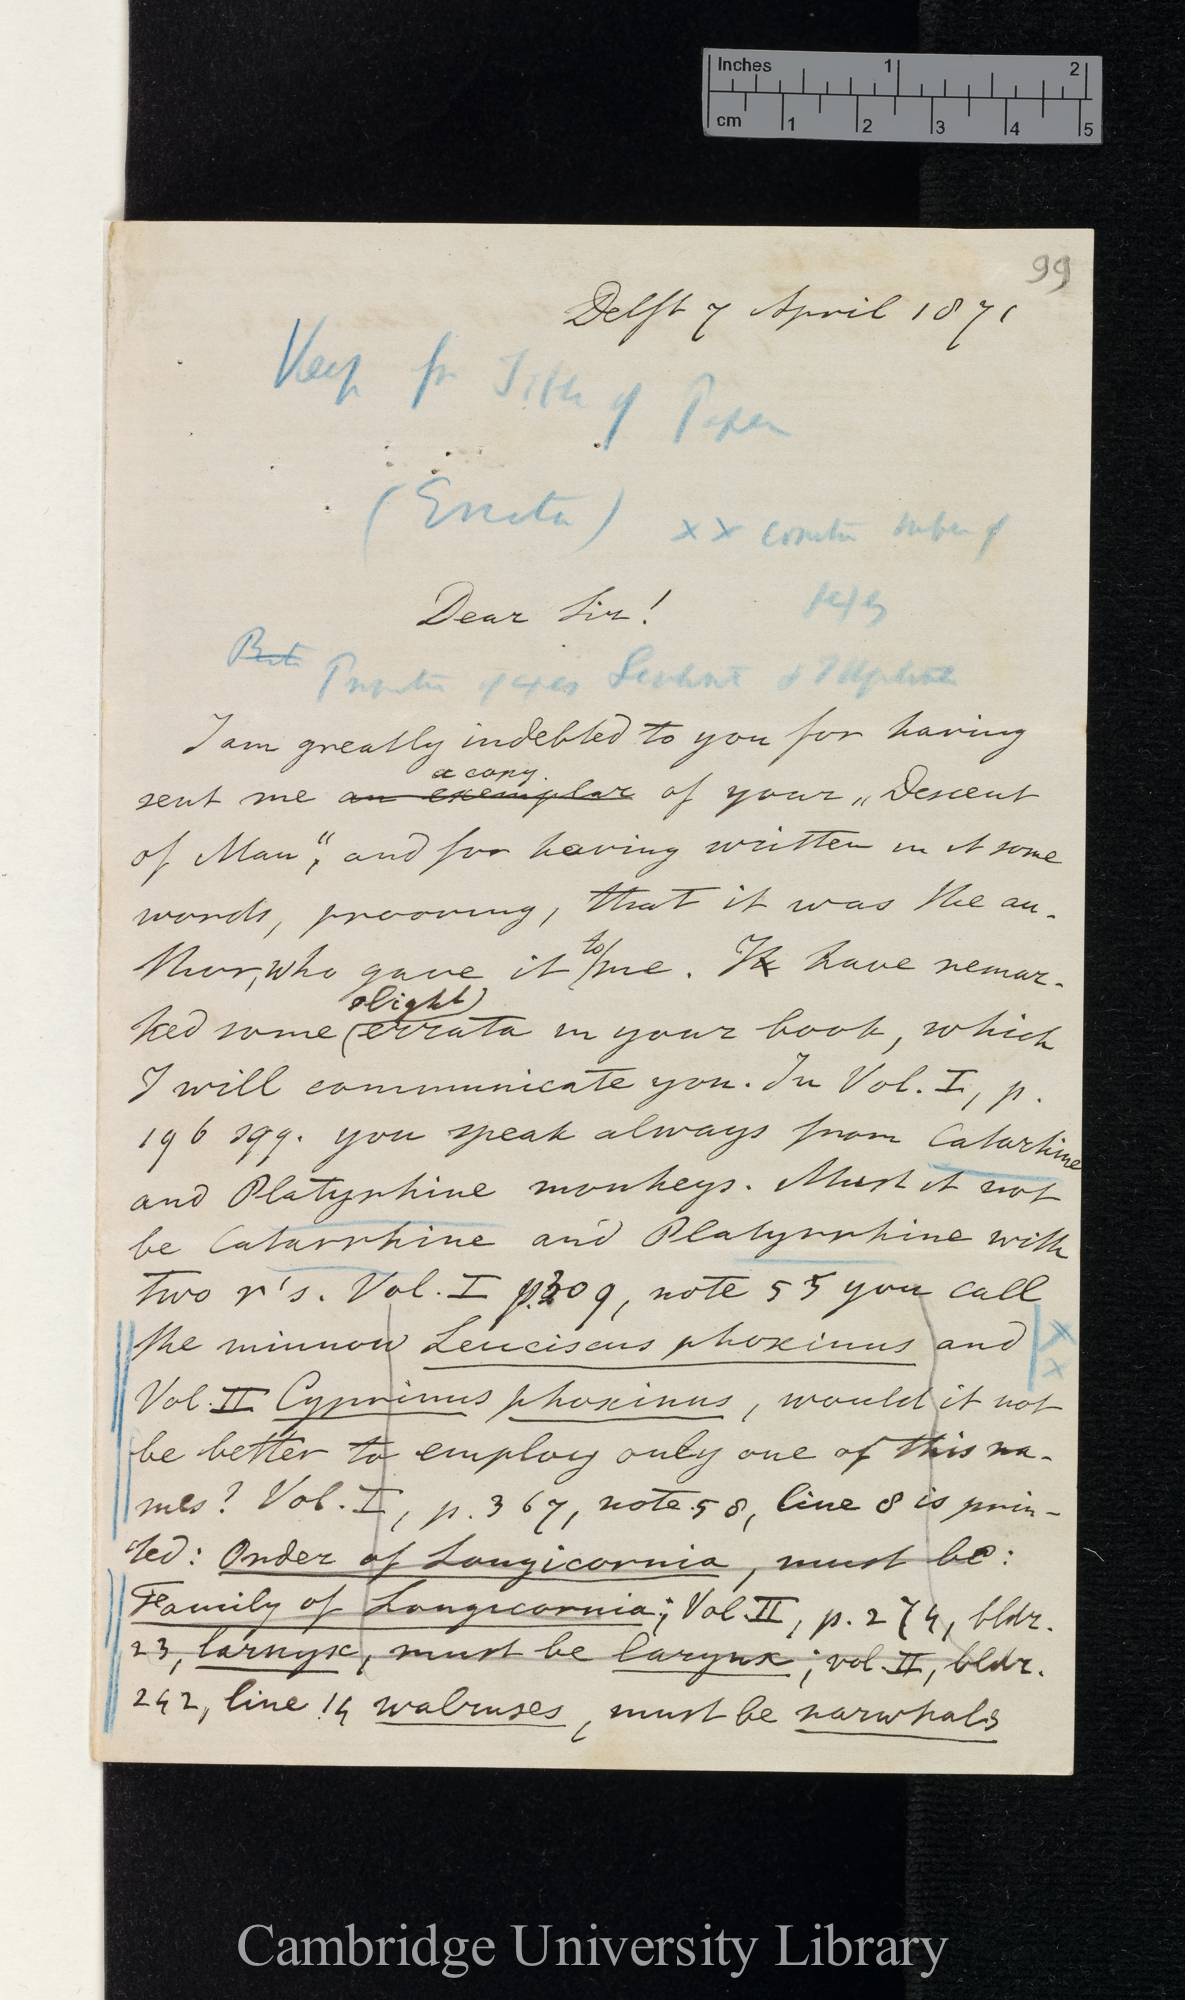 Inches 1 2
cm 1 2 3 4 5
99
Delft 7 April 1871
Keep for Title of Paper
(Errata) x x
Dear Sir!
I am greatly indebted to you for having
sent me an exemplar a copy. of your „Descent
of Man“, and for having written in it some
words, prooving, that it was the au-
thor, who gave it to me. I have remar-
ked some (slight) errata in your book, which
I will communicate you. In Vol. I, p.
196 sqq. you speak always from Catarhine
and Platyrhine monkeys. Must it not
be Catarrhine and Platyrrhine with
two r's. Vol. I p. 309, note 55 you call
the minnow Leuciscus phoxinus and
Vol. II Cyprinus phoxinus, would it not
be better to employ only one of this na-
mes? Vol. I, p. 367, note 58, line 8 is prin-
ted: Order of Longicornia, must be:
Family of Longicornia; Vol. II, p. 274, bldr.
23, larnyx, must be larynx; vol. II, bldr.
242, line 14 walruses, must be narwhals
Cambridge University Library